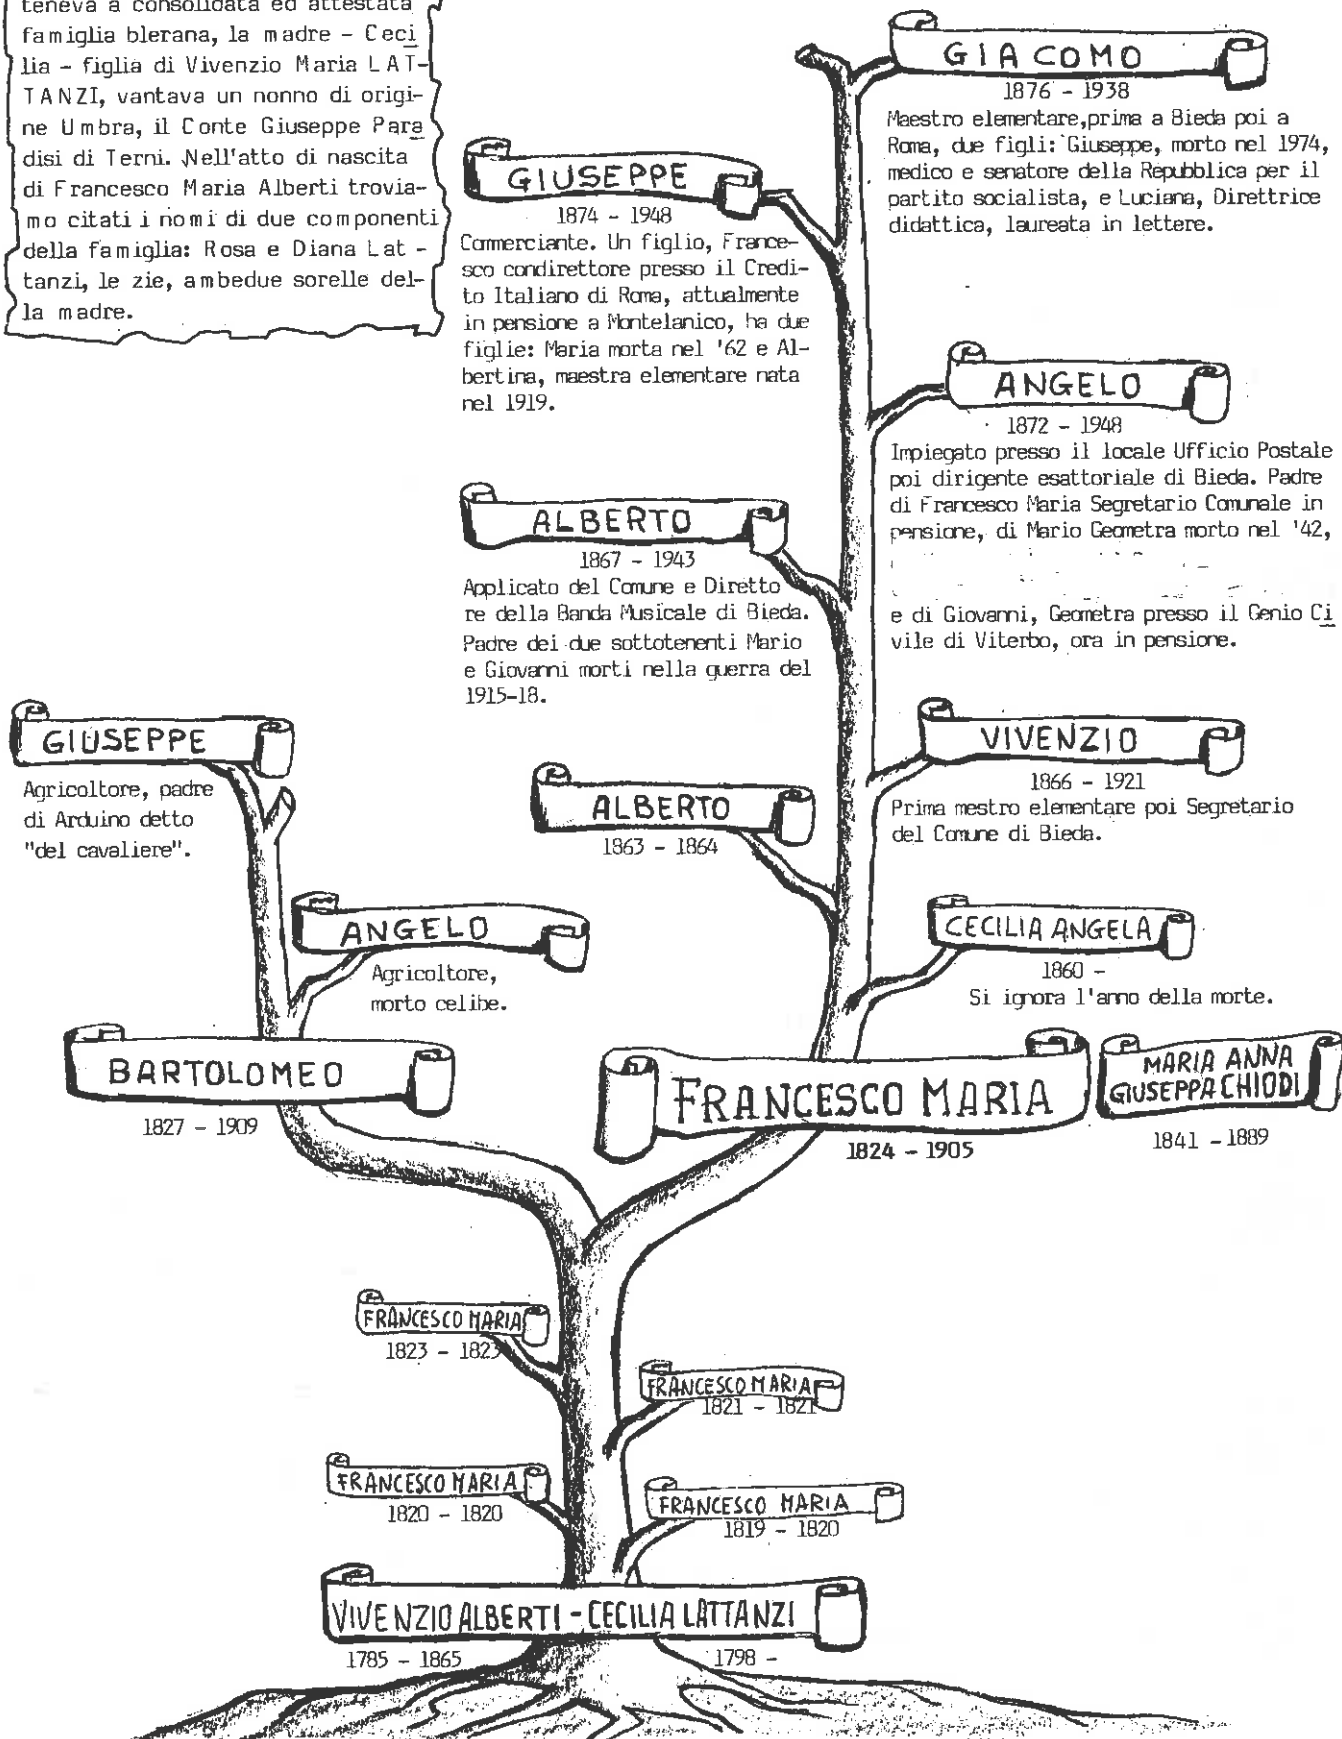 teneva a consolidata ed attestata
famiglia blerana, la madre - Ceci
lia - figlia di Vivenzio Maria LAT-
TANZI, vantava un nonno di origi-
ne Umbra, il Conte Giuseppe Para
disi di Terni. Nell'atto di nascita
di Francesco Maria Alberti trovia-
mo citati i nomi di due componenti
della famiglia: Rosa e Diana Lat -
tanzi, le zie, ambedue sorelle del-
la madre.
GIACOMO
1876 - 1938
Maestro elementare,prima a Bieda poi a
Roma, due figli: Giuseppe, morto nel 1974,
medico e senatore della Repubblica per il
partito socialista, e Luciana, Direttrice
didattica, laureata in lettere.
GIUSEPPE
1874 - 1948
Commerciante. Un figlio, France-
sco condirettore presso il Credi-
to Italiano di Roma, attualmente
in pensione a Montelanico, ha due
figlie: Maria morta nel '62 e Al-
bertina, maestra elementare nata
nel 1919.
ANGELO
1872 - 1948
Impiegato presso il locale Ufficio Postale
poi dirigente esattoriale di Bieda. Padre
di Francesco Maria Segretario Comunale in
pensione, di Mario Geometra morto nel '42,
e di Giovanni, Geometra presso il Genio Ci
vile di Viterbo, ora in pensione.
ALBERTO
1867 - 1943
Applicato del Comune e Diretto
re della Banda Musicale di Bieda.
Padre dei due sottotenenti Mario
e Giovanni morti nella guerra del
1915-18.
VIVENZIO
1866 - 1921
Prima mestro elementare poi Segretario
del Comune di Bieda.
GIUSEPPE
Agricoltore, padre
di Arduino detto
"del cavaliere".
ALBERTO
1863 - 1864
ANGELO
Agricoltore,
morto celibe.
CECILIA ANGELA
1860 -
Si ignora l'anno della morte.
BARTOLOMEO
1827 - 1909
FRANCESCO MARIA
1824 - 1905
MARIA ANNA
GIUSEPPA CHIODI
1841 - 1889
FRANCESCO MARIA
1823 - 1823
FRANCESCO MARIA
1821 - 1821
FRANCESCO MARIA
1820 - 1820
FRANCESCO MARIA
1819 - 1820
VIVENZIO ALBERTI - CECILIA LATTANZI
1785 - 1865
1798 -